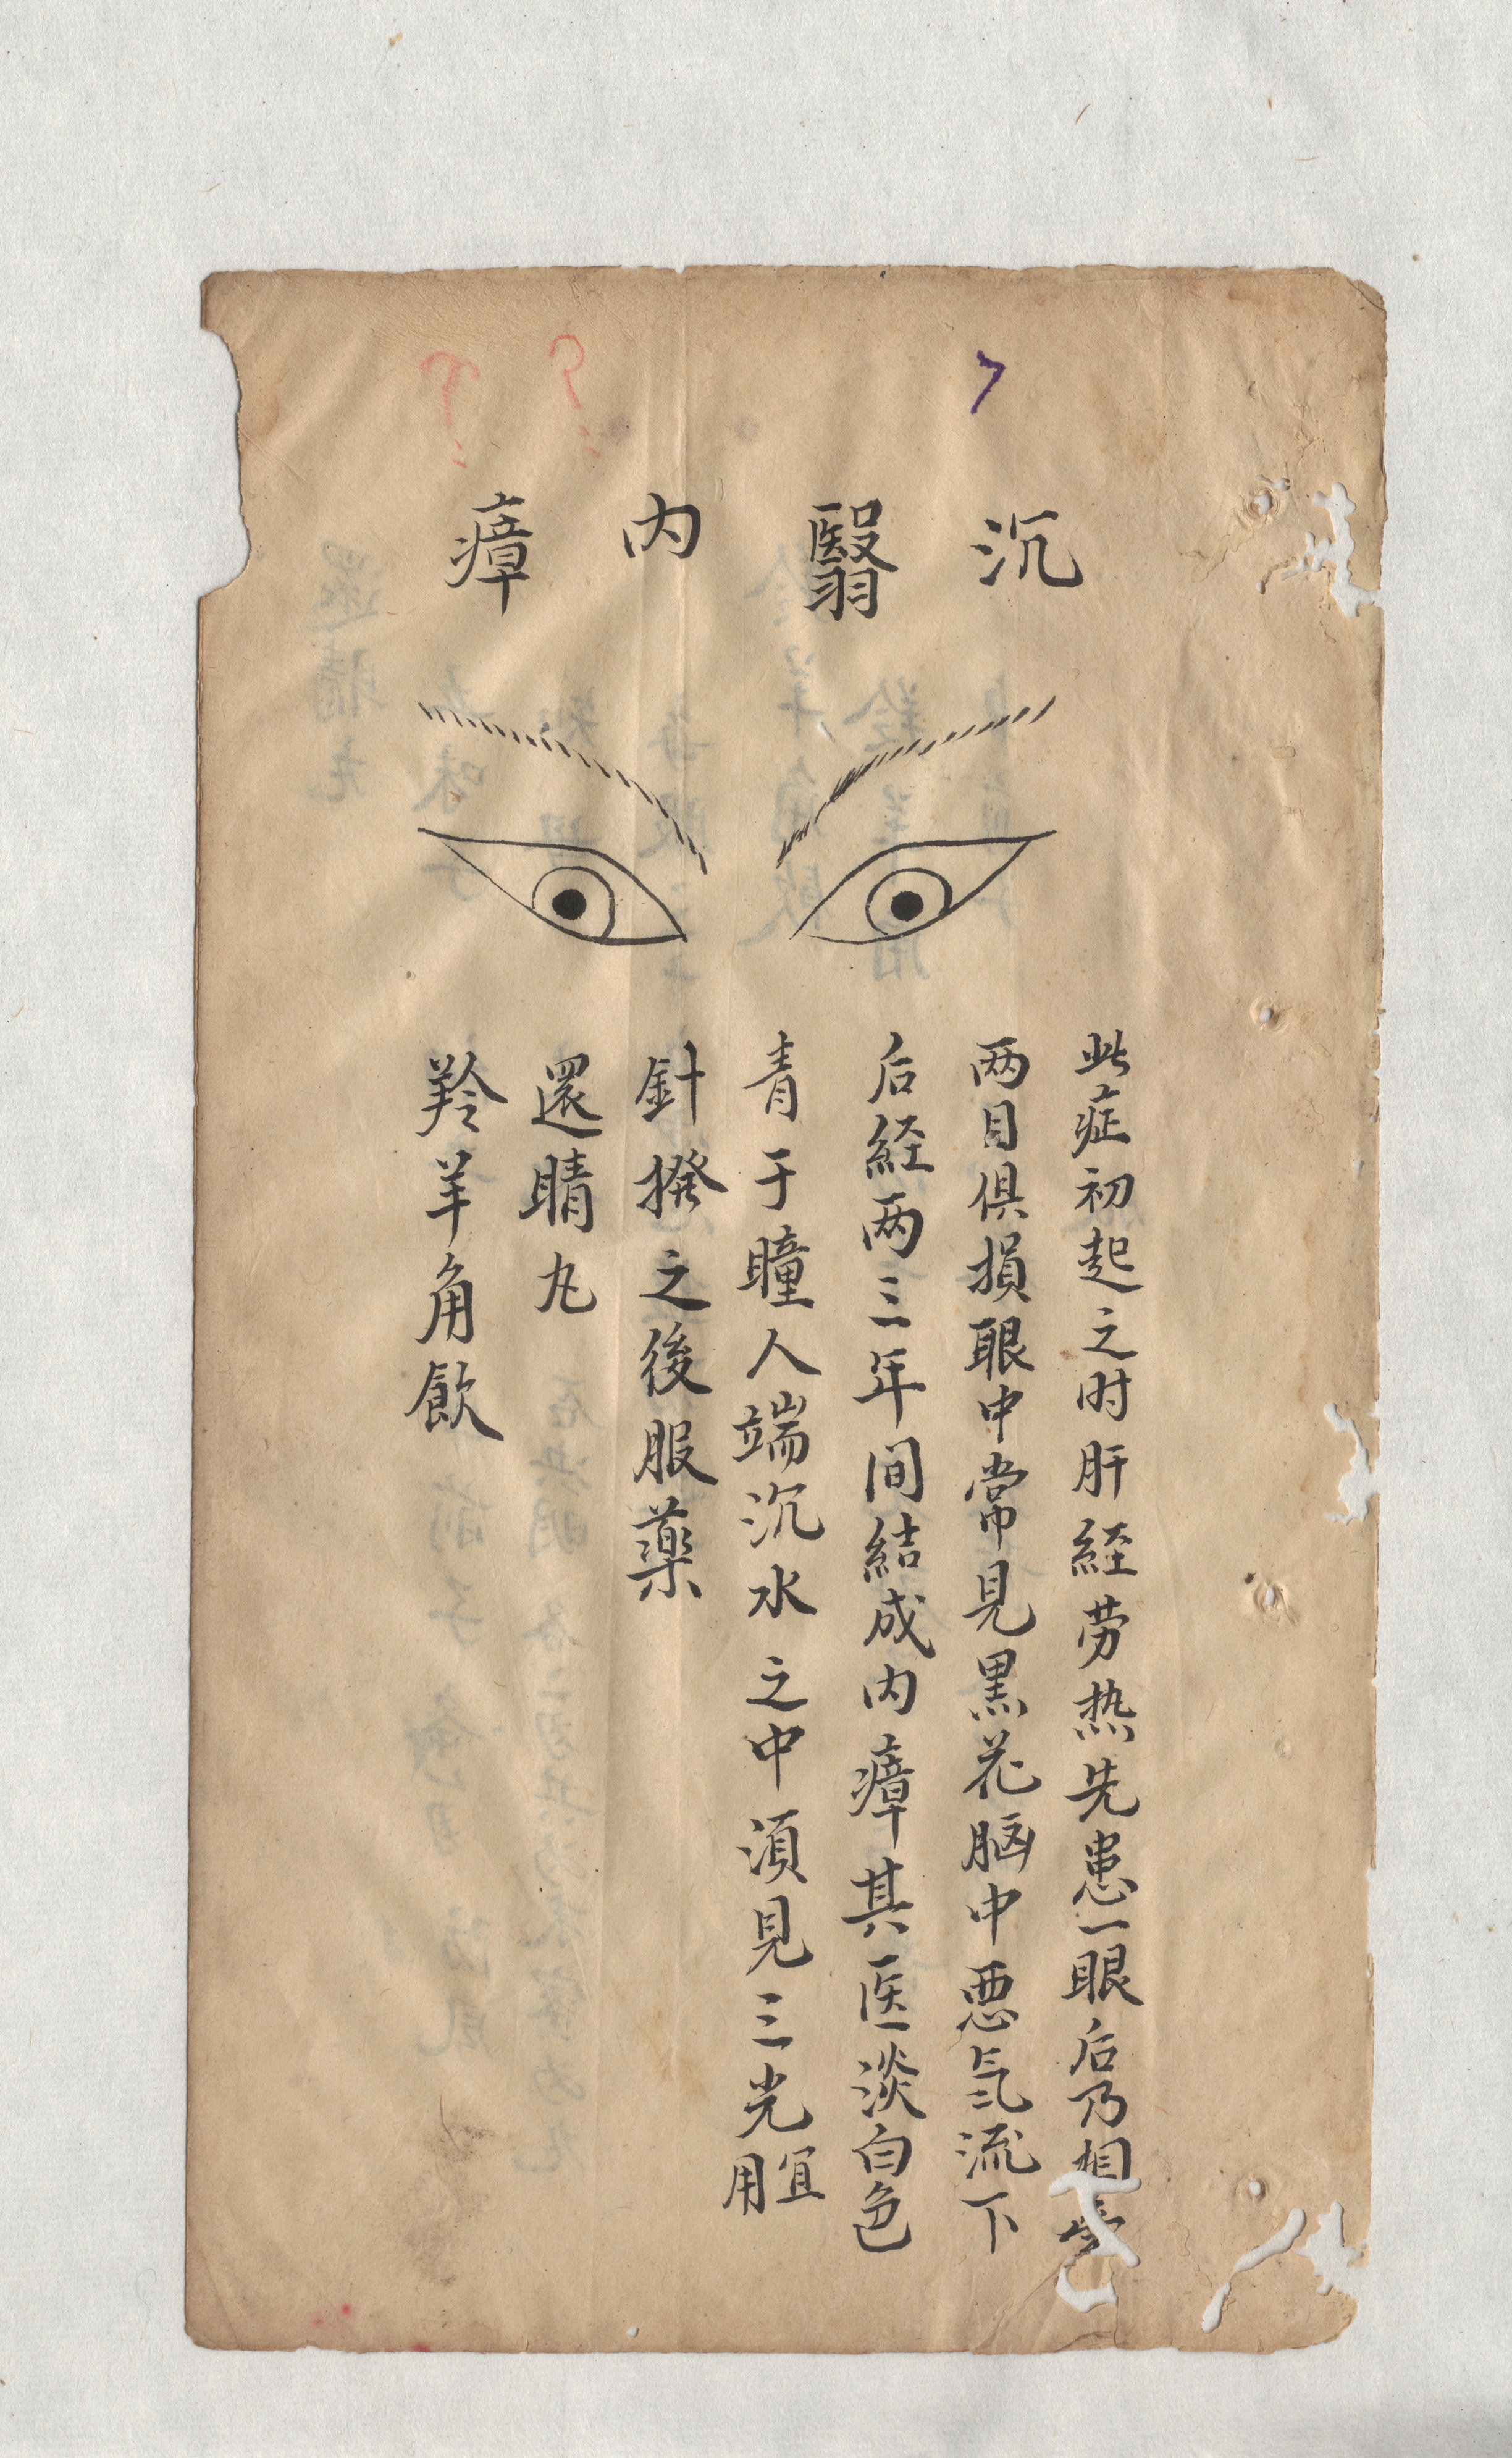 7
沉翳内瘴
此症初起之时肝经劳热先患一眼后乃相
两目俱損眼中常見黒花脑中悪氣流下
后経两三年间結成内瘴其医淡白色
青于瞳人端沉水之中須見三光宜用
針撥之後服藥
還睛丸
羚羊角飲